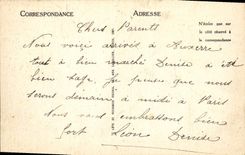 CORRESPONDANCE
ADRESSE
N'écrire que sur
le côté réservé à
la correspondance
Chers Parents
Nous voici arrivés à Auxerre
tout à bien marché Denise a été
bien sage. Je pense que nous
serons demain à midi à Paris
Nous vous embrassons bien
fort Léon Denise